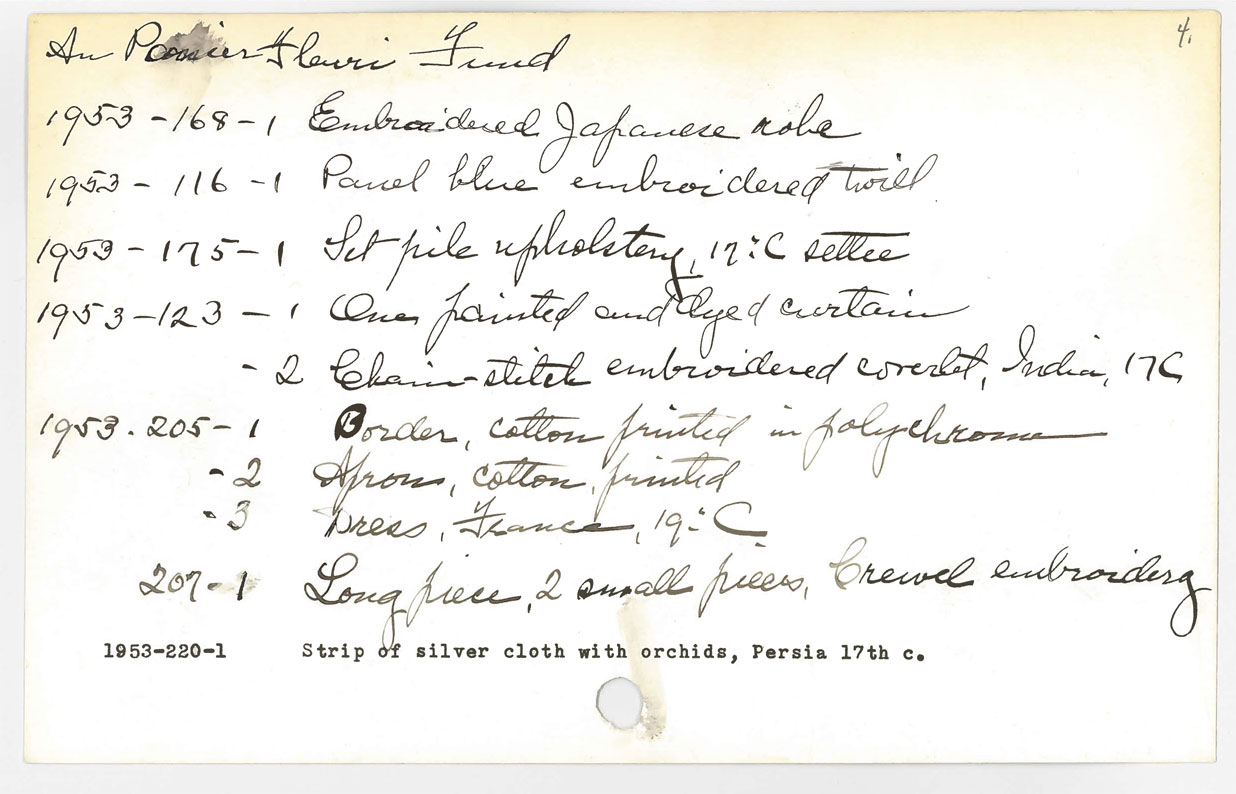 4.
Au Panier Fleuri Fund
1953-168-1 Embroidered Japanese robe
1953-116-1 Panel blue embroidered twill
1953-175-1 Set pile upholstery, 17"C settee
1953-123-1 One painted and dyed curtain
-2 Chain-stitch embroidered coverlet, India, 17C
1953.205-1 Border, cotton printed in polychrome
-2 Apron, cotton, printed
-3 Dress, France, 19"C.
207-1 Long piece, 2 small pieces, Crewel embroidery
1953-220-1 Strip of silver cloth with orchids, Persia 17th c.